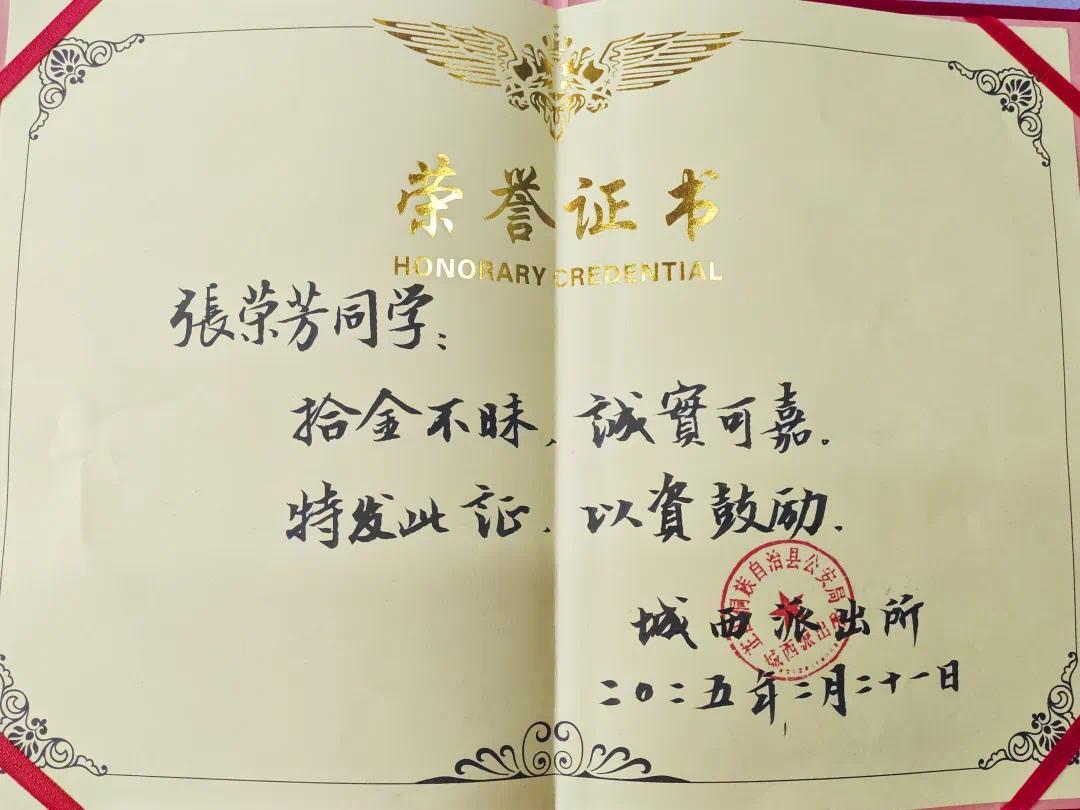 荣誉证书
HONORARY CREDENTIAL
張荣芳同学：
拾金不昧、誠實可嘉.
特发此証、以資鼓励.
城西派出所
二〇二五年二月二十一日
芷江侗族自治县公安局
城西派出所